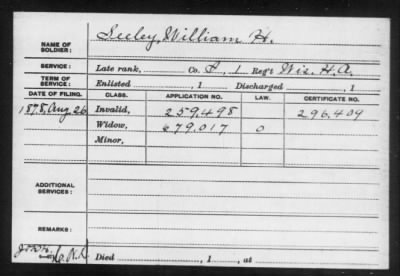 NAME OF SOLDIER: Seeley, William H.
SERVICE: Late rank, Co. , 1 Reg't Wis. H.A.
TERM OF SERVICE: Enlisted , 1 Discharged , 1
DATE OF FILING. CLASS. APPLICATION NO. LAW. CERTIFICATE NO.
1878, Aug. 26 Invalid, 259.498 296.409
Widow, 679.017 0
Minor,
ADDITIONAL SERVICES:
REMARKS:
Died , 1 , at